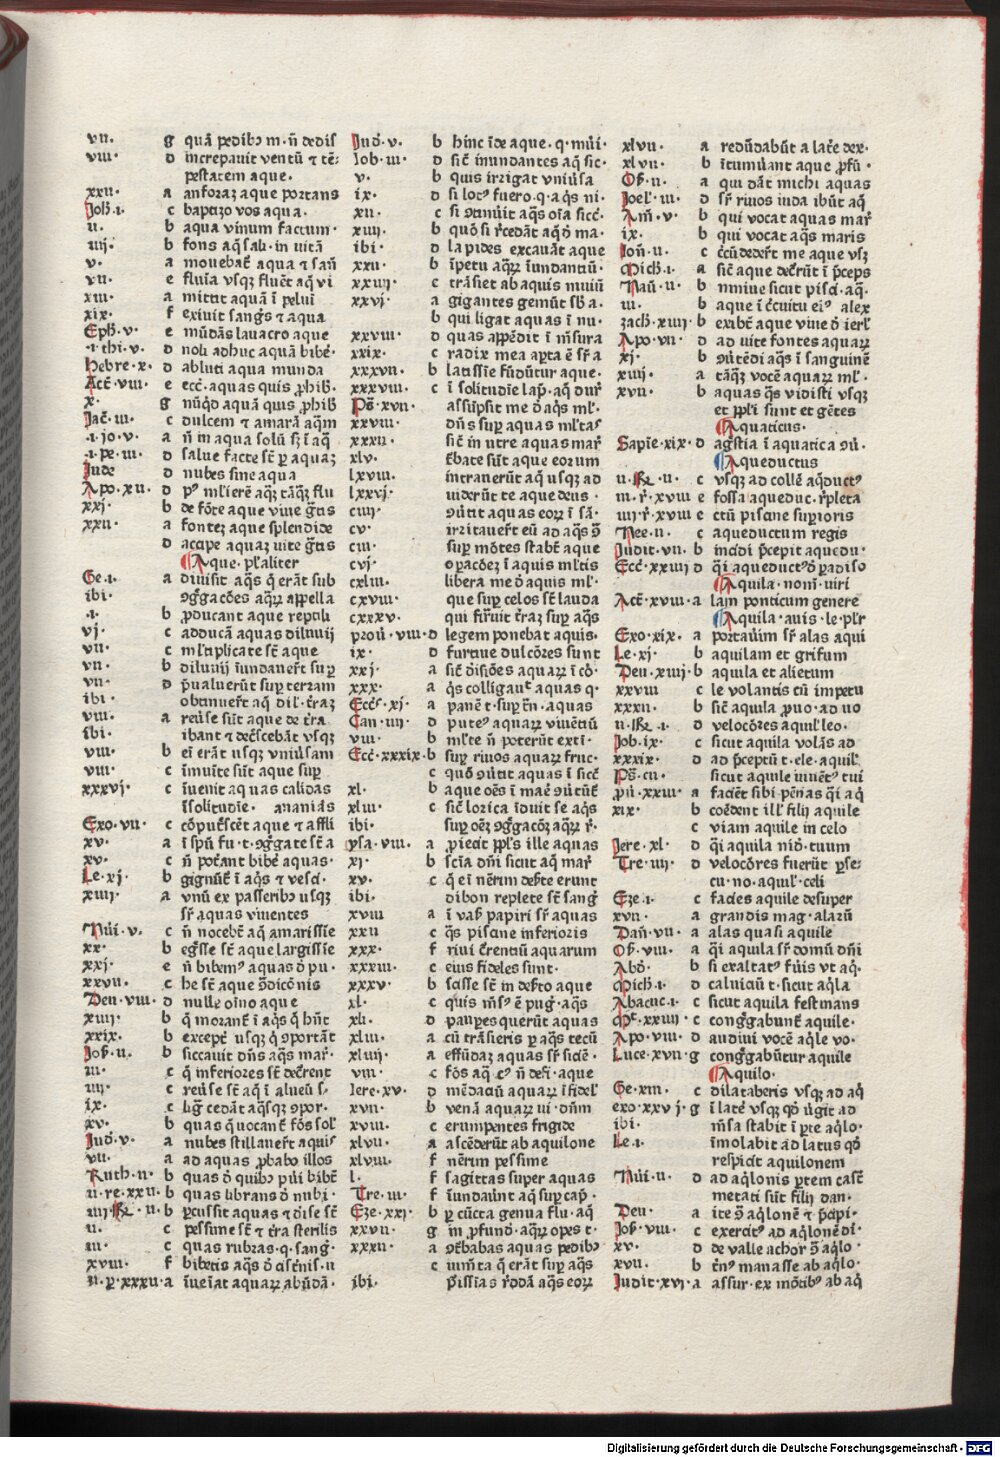 vii. g quā pedibꝰ m. n̄ dedis
viii. d increpauit ventū ⁊ tē-
pestatem aque.
xxii. a anforaz aque portans
Joh̄.i. c baptizo vos aqua.
ii. b aqua vinum factum.
iiij. b fons aq̄ sali. in vitā
v. a mouebat̄ aqua ⁊ san̄
vii. e fluia vsqꝫ fluēt aq̄ vi
xiii. a mittit aquā ī pelui
xix. f exiuit sanḡs ⁊ aqua
Eph̄.v. e mūdās lauacro aque
.i.thi.v. d noli adhuc aquā bibē.
Hebre.x. d abluti aqua munda
Act̄.viii. e ecc̄.aquas quis ꝓhib̄.
x. g nūqd aquā quis ꝓhib̄
Jac̄.iii. c dulcem ⁊ amarā aq̄m
.i.jo.v. a n̄ in aqua solū sꝫ ī aq̄
.i.pe.iii. d salue facte st̄ ꝑ aquaꝫ
Jude d nubes sine aqua
Apo.xii. d pꝰ ml̄ierē aqꝫ tāqꝫ flu
xxj. b de fōte aque viue ḡtis
xxii. a fontez aque splendide
d accipe aquaꝫ vite ḡtis
¶Aque.pl̄aliter
Ge.i. a diuisit aq̄s q̄ erāt sub
ibi. ꝯḡgacōes aqꝝ appella
.i. b ꝓducant aque reptili
vj. c adducā aquas diluuij
vii. c ml̄tiplicate st̄ aque
vii. b diluuij īundauer̄t suꝑ
vii. d p̄ualuerūt suꝑ terram
ibi. obtinuer̄t aq̄ dil̄.t̄raꝫ
viii. a reu̕se sūt aque de t̄ra
ibi. ibant ⁊ dec̄scebāt vsqꝫ
viii. b ei erāt usqꝫ vniu̕sam
viii. c īmuite sūt aque suꝑ
xxxvj. c īuenit aquas calidas
īsolitudīe. ananias
Exo.vii. c cōput̄scēt aque ⁊ affli
xv. a ī spū fu.t.ꝯḡgate st̄ a
xv. c n̄ pot̄ant bibē aquas.
Le.xj. b gignūt̄ ī aq̄s ⁊ vesci.
xiiii. a vnū ex passeribꝰ usqꝫ
sr̄ aquas viuentes
Nūi.v. c n̄ nocebt̄ aq̄ amarissie
xx. b eḡsse st̄ aque largissie
xxj. e n̄ bibemꝰ aquas d̄ pu.
xxvii. c he st̄ aque ꝯdicōnis
Deu.viii. d nulle oīno aque
xiiij. b q̄ morant̄ ī aq̄s q̄ hn̄t
xxix. b except̄ usqꝫ q̄ ꝯportāt
Jos̄.ii. b siccauit dn̄s aq̄s mar̄.
iii. c q̄ inferiores st̄ decrent
iiij. c reu̕se st̄ aq̄ ī alueū s.
ix. c liḡ cedāt aq̄sqꝫ ꝯpor.
xv. b quas q̄uocant̄ fōs sol̄
Jud̄.v. a nubes stillauer̄t aquis
vii. a ad aquas ꝓbabo illos
Ruth.ii. b quas d̄ quibꝰ pūi bibēt
ii.re.xxii. b quas librans d̄ nubi.
iiij.R̄.ii. b ꝑcussit aquas ⁊ diuise st̄
ii. c pessime st̄ ⁊ t̄ra sterilis
iii. c quas rubras.q.sanḡ.
xviii. f bibetis aq̄s d̄ cist̄nis.ii
ii.ꝑ.xxxii. a īueiat aquaꝝ abūdā.
Jud̄.v. b hinc īde aque.q.mūi.
Job.iii. d sic̄ inundantes aq̄ sic.
v. b quis irrigat vniu̕sa
ix. d si locꝰ fuero.q.aq̄s ni.
xii. c si ꝯtinuit aq̄s oīa sicc̄.
xiiij. b quō si r̄cedāt aq̄ d̄ ma.
ibi. d lapides excauāt aque
xxii. b īpetu aqꝝ īundantiū.
xxiiij. c trāsiet ab aquis niuiū
xxvj. a gigantes gemūt sb̄ a.
b qui ligat aquas ī nu.
xxviii. d quas appēdit ī mēsura
xxix. c radix mea apta ē sr̄ a
xxxvii. b latissie fūdūtur aque.
xxxviii. c ī solitudīe lap̄.aq̄ dur̄
Ps̄.xvii. assūpsit me d̄ aq̄s ml̄.
xxviii. dn̄s suꝑ aquas ml̄tas
xxxii. sic̄ in utre aquas mar̄
xlv. t̄bate sūt aque eorum
lxviii. intrauerūt aq̄ usqꝫ ad
lxxvj. uiderūt te aque deus.
ciij. ꝯtīt aquas eoꝝ ī sā.
cv. irritauer̄t eū ad aq̄s ꝯ̄
ciii. suꝑ mōtes stabt̄ aque
cvj. opacōeꝫ ī aquis ml̄tis
cxliii. libera me d̄ aquis ml̄.
cxviii. que suꝑ celos st̄ lauda
cxxxv. qui fir̄uit t̄raꝫ suꝑ aq̄s
ꝓrou̕.viii. d legem ponebat aquis.
ix. d furtiue dulcōres sunt
xxj. a sic̄ diuisiōes aquaꝝ ī cō.
xxx. a q̄s colligauᵗ aquas q.
Eccs̄.xj. a panē t.suꝑ t̄n.aquas
Can.iiij. d puteꝰ aquaꝝ viuētiū
viii. b ml̄te n̄ poterūt exti.
Ecc̄.xxxix. b suꝑ riuos aquaꝝ fruc.
c quō ꝯtīt aquas ī sicc̄
xl. b aque oēs ī mar̄ ꝯūtūt̄
xliii. c sic̄ lorica īduit se aq̄s
ibi. suꝑ oēꝫ ꝯḡgacōꝫ aqꝝ r̄.
ysa.viii. a ꝓiecit ppl̄s ille aquas
xj. b scīa dn̄i sicut aq̄ mar̄
xv. c q̄ ei nērim deb̄te erunt
ibi. dibon replete st̄ sanḡ
xviii a ī vas̄ papiri sr̄ aquas
xxii c q̄s piscine inferioris
xxx. f riui c̄rentiū aquarum
xxxiii. c eius fideles sunt.
xxxv. b scisse st̄ in deb̄to aque
xl. c quis mēsꝰ ē puḡ.aq̄s
xli. d paupes querūt aquas
xliii. a cū trāsieris ꝑ aq̄s tecū
xliiij. a effūdaꝫ aquas sr̄ sicīe.
viii. c fōs aq̄ cꝰ n̄ defi.aque
Jere.xv. d mēdaciū aquaꝝ īfidel̄
xvii. b venā aquaꝝ ui.dn̄m
xviii. c erumpentes frigide
xlvii. a ascēderūt ab aquilone
xlviii. f nērim pessime
l. f sagittas super aquas
Tre.iii. f īundauīt aq̄ suꝑ cap̄.
Eze.xxj. b ꝑ cūcta genua flu.aq̄
xxvii. g in ꝓfund̄.aqꝝ opes t.
xxxii. a ꝯt̄babas aquas pedibꝰ
c iumta q̄ erāt suꝑ aq̄s
ibi. p̄issias r̄ddā aq̄s eoꝝ
xlvii. a redūdabūt a lat̄e dex.
xlvii. b ītumuant aque ꝓfū.
Os̄.ii. a qui dāt michi aquas
Joel̄.iii. d sr̄ riuos iuda ibūt aq̄
Am̄.v. b qui vocat aquas mar̄
ix. b qui vocat aq̄s maris
Jon̄.ii. c c̄cūdeder̄t me aque vsꝫ
Mich̄.i. a sic̄ aque decr̄ūt ī p̄ceps
Naū.ii. b niniue sicut pisci.aq̄.
iii. b aque ī c̄cuitu eiꝰ alex
zach̄.xiiij b exibt̄ aque viue d̄ ierl̄
Apo.vii. d ad uite fontes aquaꝝ
xj. b ꝯu̕tēdi aq̄s ī sanguinē
xiiij. a tāqꝫ vocē aquaꝝ ml̄.
xvii. b aquas q̄s vidisti vsqꝫ
et ppl̄i sunt et gētes
¶Aquaticus.
Sapīe.xix. d aḡstia ī aquatica ꝯu̕.
¶Aqueductus
ii.R̄.ii. c vsqꝫ ad collē aq̄ductꝰ
iii.r̄.xviii e fossa aqueduc.r̄pleta
iiij.r̄.xviii c ctū piscine suꝑioris
Nee.ii. c aqueductum regis
Judit.vii. b incīdi p̄cepit aquedu.
Ecc̄.xxiiij d q̄i aqueductꝰ d̄ ꝑadiso
¶Aquila.nom̄.uiri
Act̄.xviii. a lam ponticum genere
¶Aquila.auis.le.pl̄r
Exo.xix. a portauīm sr̄ alas aqui
Le.xj. b aquilam et grifum
Deu.xiiij. b aquila et alietum
xxviii c le volantis cū impetu
xxxii. b sic̄ aquila ꝓuo.ad uo
ii.R̄.i. d velocōres aquil̄ leo.
Job.ix. c sicut aquila volās ad
xxxix. d ad p̄ceptū t.ele.aquil̄
Ps̄.cii. sicut aquile iuuēt̄ꝰ tui
ꝓu̕.xxiii. a faciēt sibi pēnas q̄i aq̄
xix. b comedent ill̄ filij aquile
c viam aquile in celo
Jere.xl. d q̄i aquila nid̄.tuum
Tre.iiij. d velocōres fuerūt ꝑse-
cu.no.aquil̄.celi
Eze.i. c facies aquile desuper
xvii. a grandis mag.alarū
Dan̄.vii. a alas quasi aquile
Os̄.viii. a q̄i aquila sr̄ domū dn̄i
Abd̄. b si exaltatꝰ fūis vt aq̄.
Mich̄.i. d caluiciū t.sicut aq̄la
Abacuc.i. c sicut aquila festinans
Mᵗ̄.xxiiij. c conḡgabunt̄ aquile.
Apo.viii. d audiui vocē aq̄le vo.
Luce.xvii g conḡgabūtur aquile
¶Aquilo.
Ge.xiii. c dilataberis vsqꝫ ad aq̄
exo.xxvj. g ī lat̄e vsqꝫ qd̄ ūgit ad
ibi. mēsa stabit ī ꝑte aq̄lo.
Le.i. īmolabit ad latus qd̄
respicit aquilonem
Nūi.ii. d ad aq̄lonis ꝑtem cast̄
metati sūt filij dan.
Deu. a ite ꝯ̄ aq̄lonē ⁊ p̄cipi.
Jos̄.viii. c exercitꝰ ad aq̄lonē di.
xv. d de valle achor ꝯ̄ aq̄lo.
xvii. b t̄nꝰ manasse ab aq̄lo.
Judit.xvi. a assur.ex mōtibꝰ ab aq̄
Digitalisierung gefördert durch die Deutsche Forschungsgemeinschaft - DFG